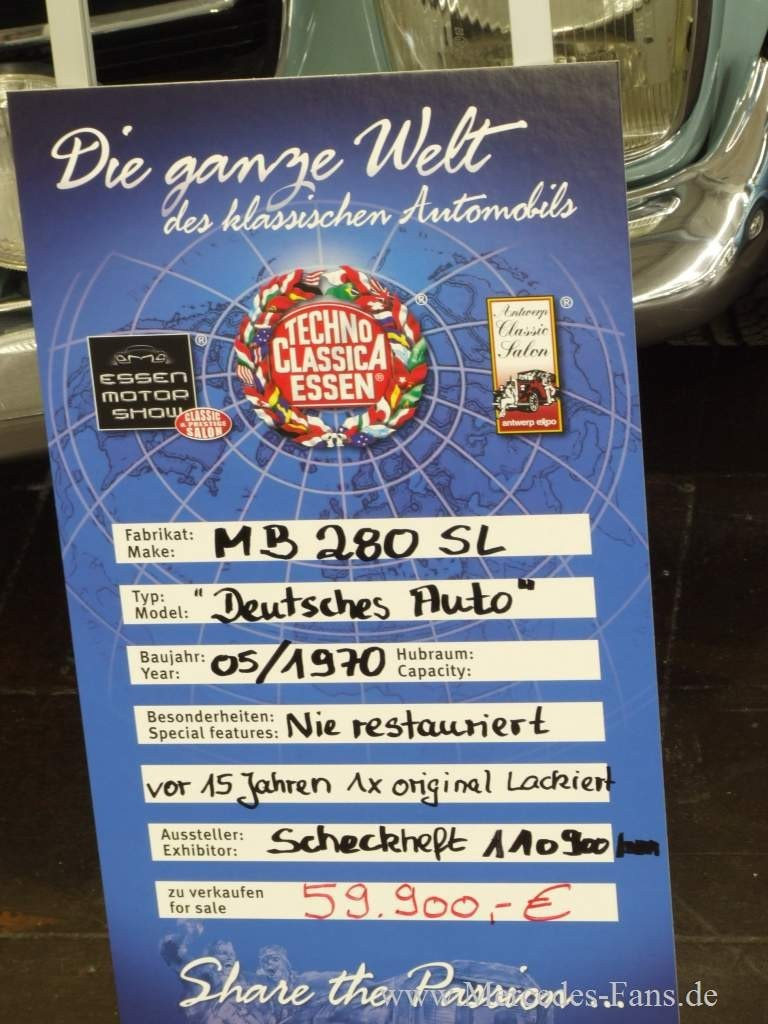 Die ganze Welt
des klassischen Automobils
TECHNO
CLASSICA
ESSEN®
®
ESSEN
MOTOR
SHOW
®
CLASSIC
& PRESTIGE
SALON
Antwerp
Classic
Salon
®
antwerp expo
Fabrikat: MB 280 SL
Make:
Typ: "Deutsches Auto"
Model:
Baujahr: 05/1970 Hubraum:
Year: Capacity:
Besonderheiten: Nie restauriert
Special features:
vor 15 Jahren 1x original Lackiert
Aussteller: Scheckheft 110900
Exhibitor:
zu verkaufen 59.900,- €
for sale
Share the Passion ...
www.Mercedes-Fans.de